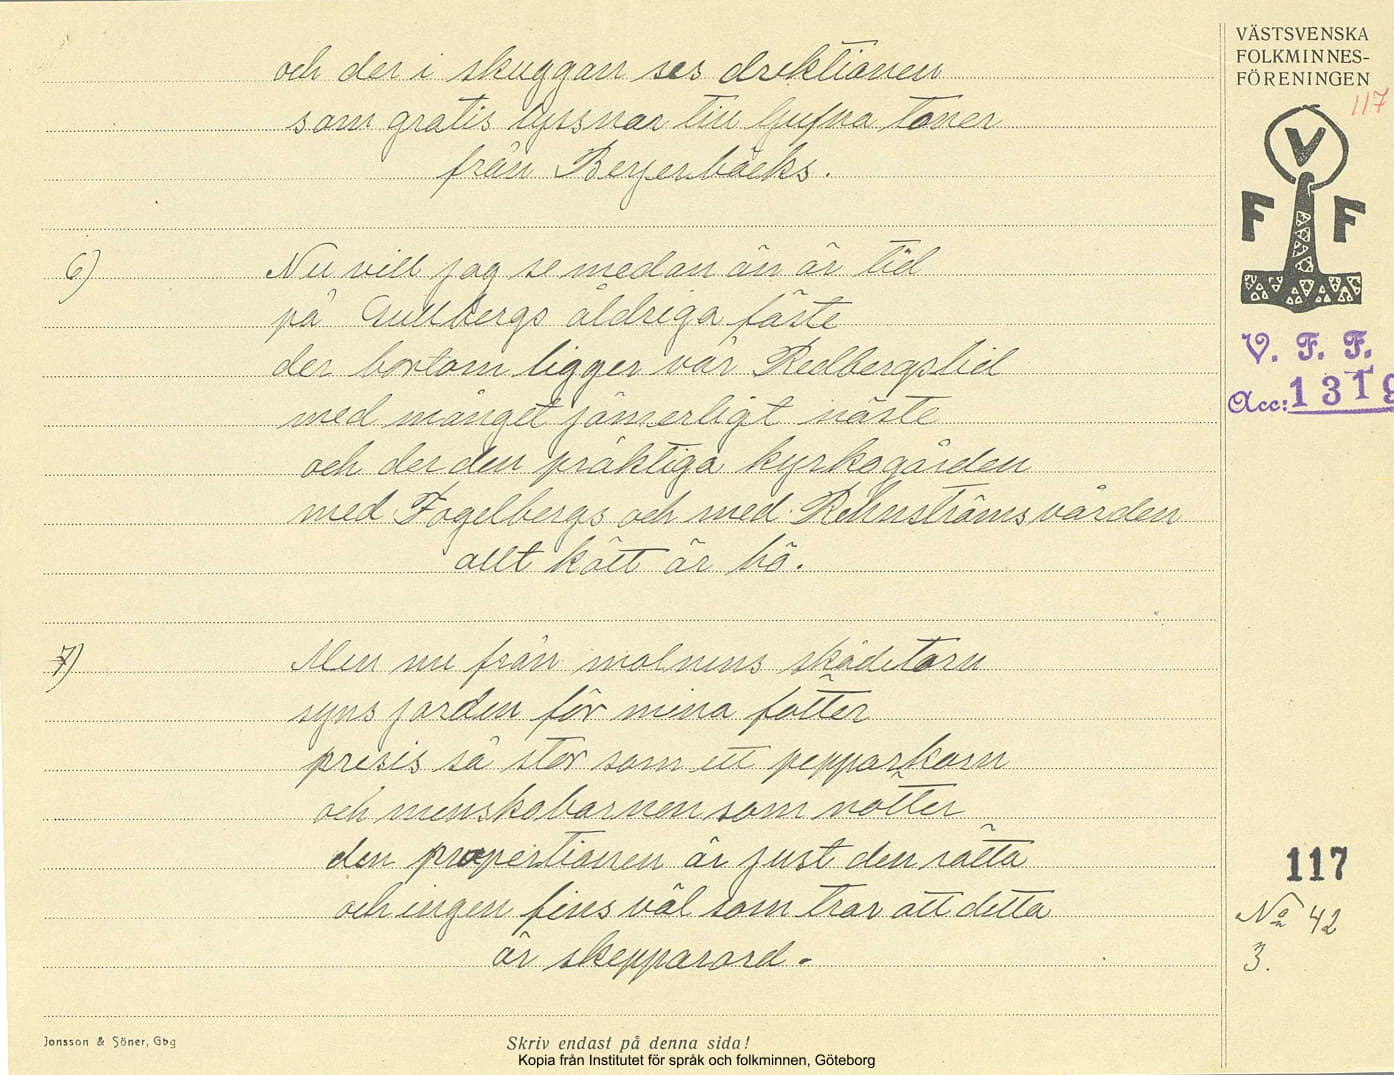 och der i skuggan ses drektionen
som gratis lyssnar till ljufva toner
från Beyerböcks.
6) Nu vill jag se medan än är tid
på Gullbergs åldriga fäste
der bortom ligger vår Redbergslid
med månget jämerligt näste
och der den präktiga kyrkogården
med Fogelbergs och med Rehnströms vården
allt kött är hö.
7) Men nu från molnens skådetorn
syns jorden för mina fötter
presis så stor som ett pepparkorn
och menskobarnen som nötter
den propertionen är just den rätta
och ingen fins väl som tror att detta
är skepparord.
VÄSTSVENSKA
FOLKMINNES-
FÖRENINGEN
117
V
F F
V. F. F.
Acc: 1319
117
No 42
3.
Jonsson & Söner, Gbg
Skriv endast på denna sida!
Kopia från Institutet för språk och folkminnen, Göteborg